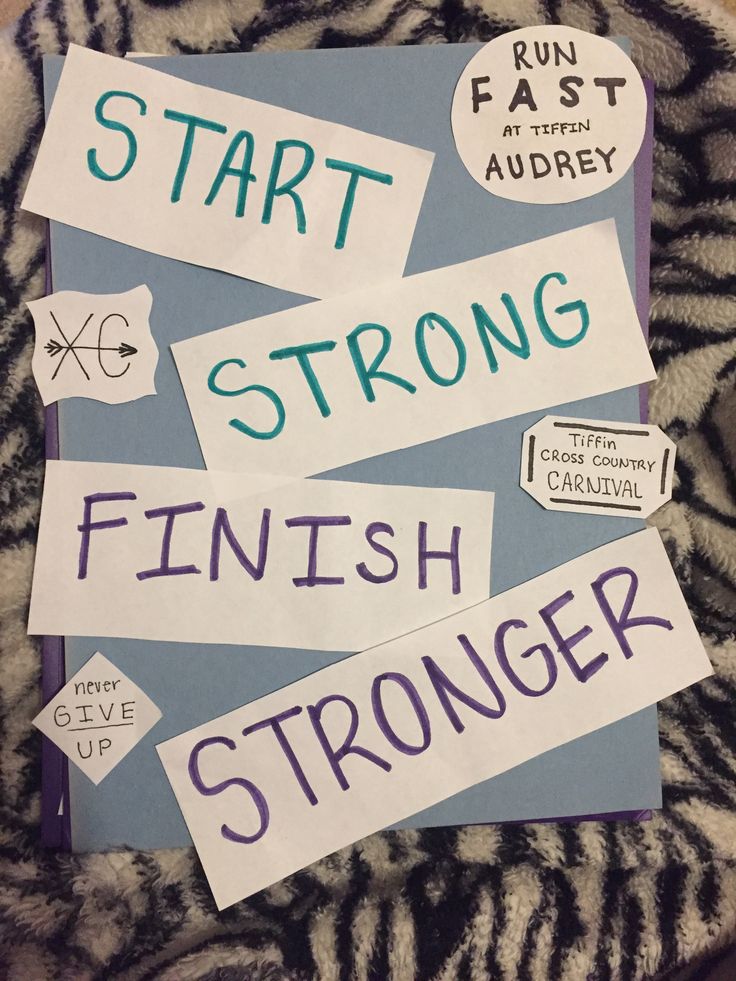 START
RUN
FAST
AT TIFFIN
AUDREY
STRONG
XC
Tiffin
CROSS COUNTRY
CARNIVAL
FINISH
never
GIVE
UP
STRONGER